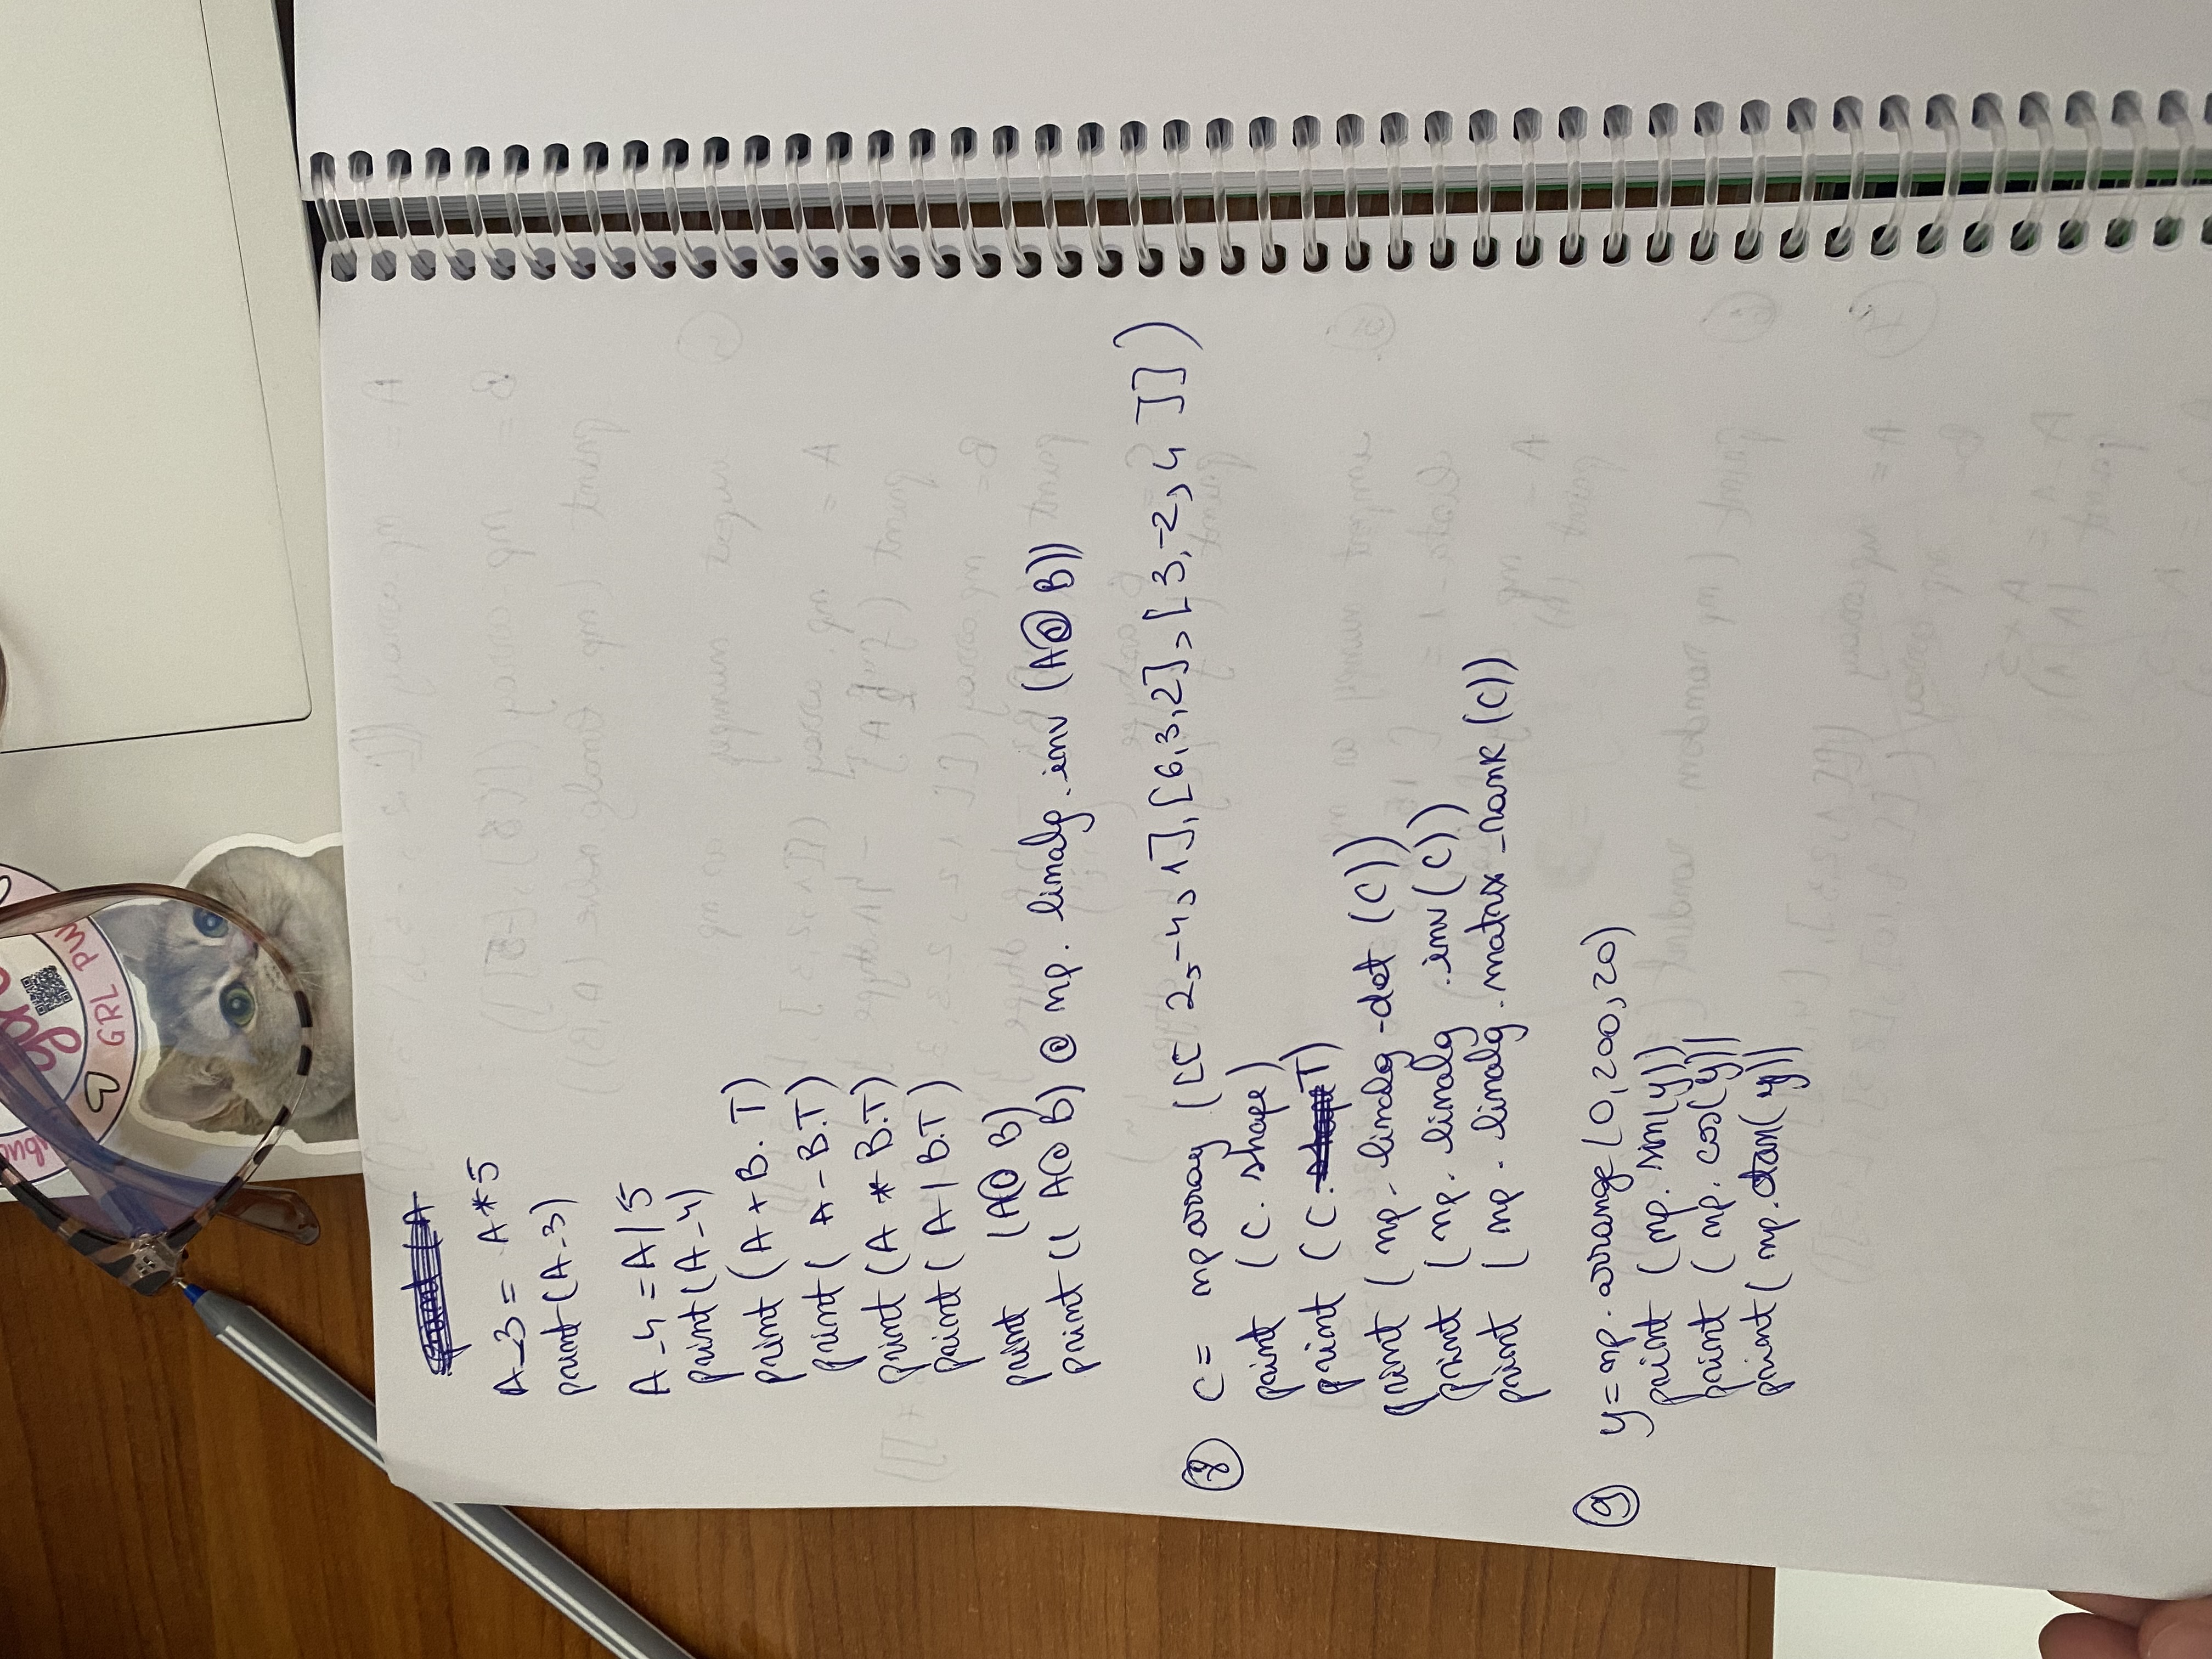 GRL PW
A_3 = A*5
print(A_3)
A_4 = A/5
print(A_4)
print (A + B. T)
print( A - B.T)
print (A * B.T)
print( A / B.T)
print (A@ B)
print (( A@ B) @ np. linalg. inv (A@ B))
⑧ C = np array ([[ 2, -4, 1], [6,3,2], [3,-2, 4 ]])
print (C. shape)
print (C. T)
print ( np - linalg - det (C))
print ( np. linalg .inv (C))
print ( np . linalg . matrix _rank (C))
⑨ y = np. arrange (0,200,20)
print (np. sin(y))
print ( np. cos(y))
print( np. tan( y))